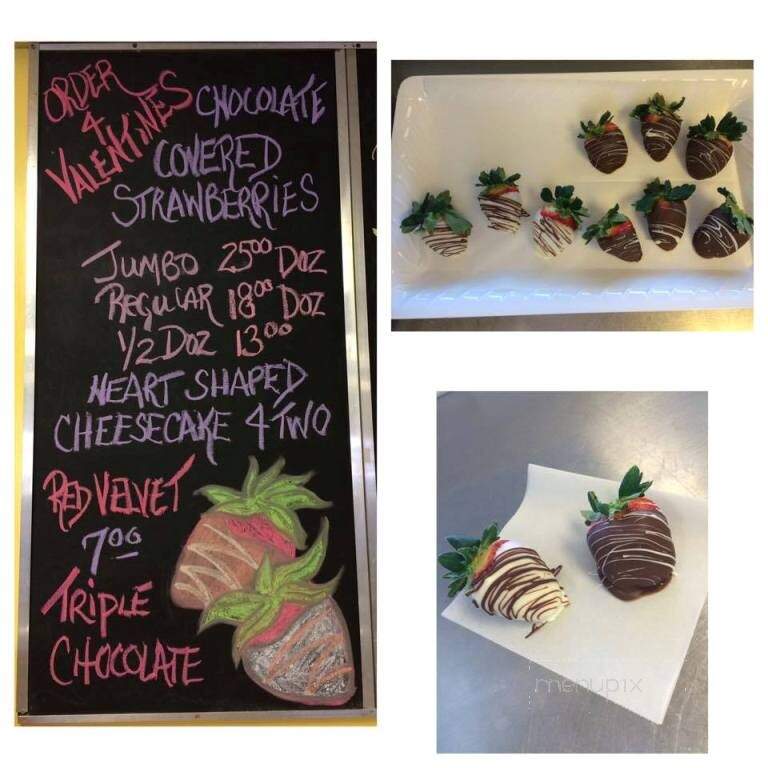 ORDER
4
VALENTINES
CHOCOLATE
COVERED
STRAWBERRIES
JUMBO 25⁰⁰ DOZ
REGULAR 18⁰⁰ DOZ
1/2 DOZ 13⁰⁰
HEART SHAPED
CHEESECAKE 4 TWO
RED VELVET
7⁰⁰
TRIPLE
CHOCOLATE
menupix